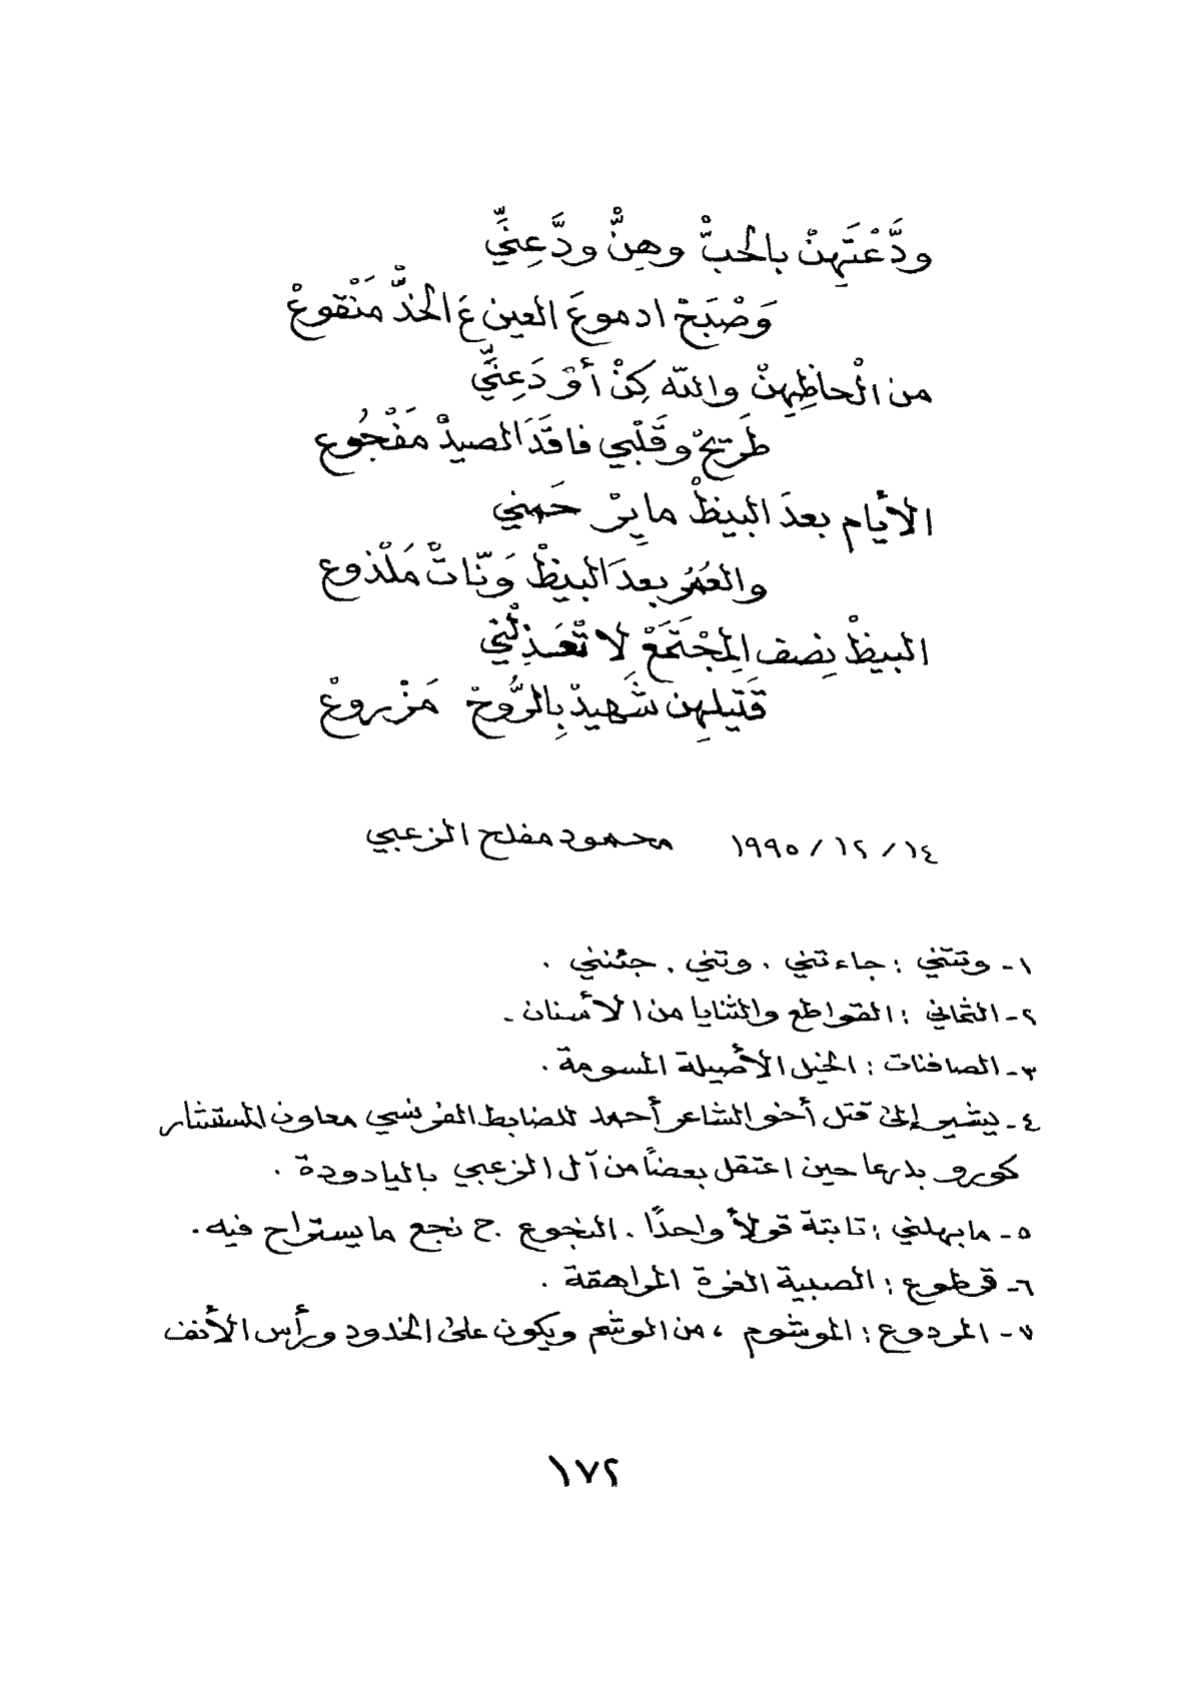 ودَّعْتَهِنْ بالحبّْ وهِنّْ ودَّعِنِّي
وَصْبَحْ ادموعَ العين عَ الخدّْ مَنْقوعْ
من الْحاظِهِنْ والله كِنْ أوْدَعِنِّي
طَريحْ وقَلْبي فاقَدَ الصيدْ مَفْجُوع
الأيام بعدَ البيظْ مايِرْحَمني
والعُمُر بعدَ البيظْ وَنّاتْ مَلْذوع
البيظْ نِصف المِجْتَمَعْ لا تْعَذِلْني
قَتيلهِن شَهيدْ بِالرُّوحْ مَزْروعْ
١٤ / ١٢ / ١٩٩٥ محمود مفلح الزعبي
١- وتتني : جاءتني . وتني . جئنني .
٢- الثماني : القواطع والثنايا من الأسنان .
٣- الصافنات : الخيل الأصيلة المسومة .
٤- يشير إلى قتل أخو الشاعر أحمد للضابط الفرنسي معاون المستشار
كورو بدرعا حين اعتقل بعضاً من آل الزعبي باليادودة .
٥- مابهلني : ثابتة قولاً واحدًا . النجوع . ج نجع ما يستراح فيه .
٦- قطوع : الصبية الغرة المراهقة .
٧- المردوع : الموشوم ، من الوشم ويكون على الخدود ورأس الأنف
١٧٢